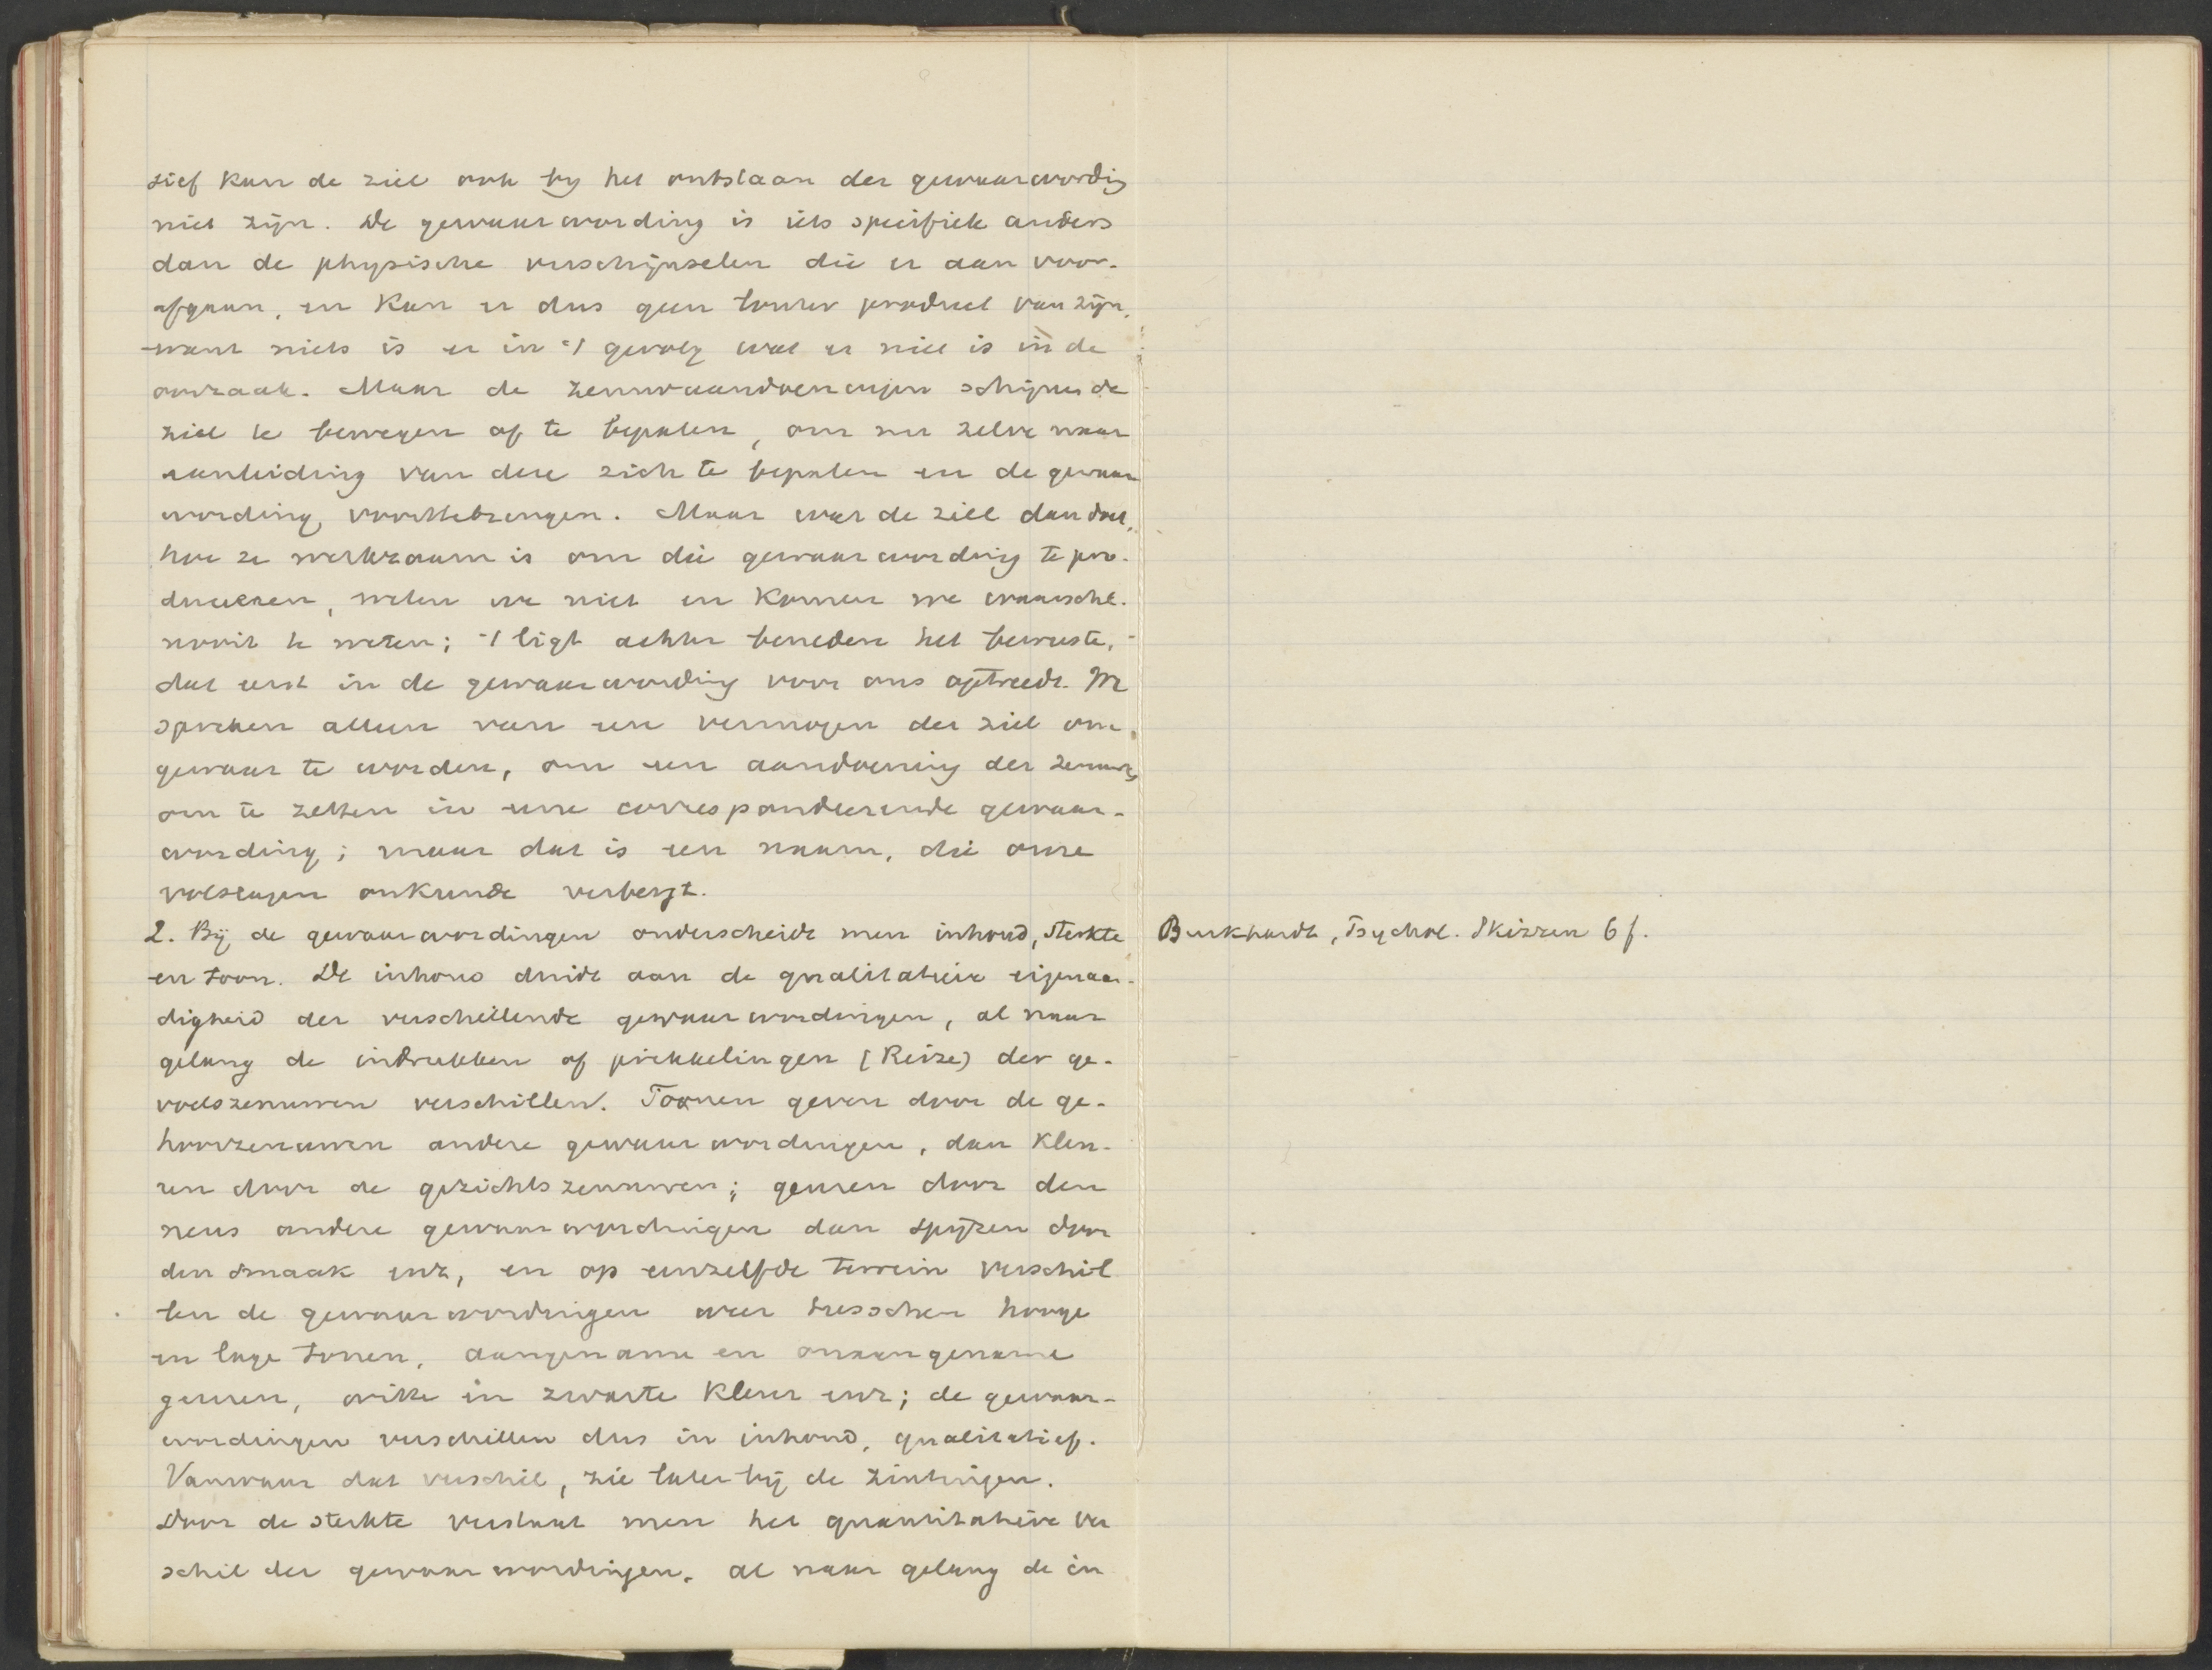 sief kan de ziel ook bij het ontstaan der gewaarwording
niet zijn. De gewaarwording is iets specifiek anders
dan de physische verschijnselen die er aan voor-
afgaan, en kan er dus geen louter product van zijn,
want niets is er in 't gevolg wat er niet is in de
oorzaak. Maar de zenuwaandoeningen schijnen de
ziel te bewegen of te bepalen, om nu zelve naar
aanleiding van deze zich te bepalen en de gewaar
wording voorttebrengen. Maar wat de ziel dan doet,
hoe ze werkzaam is om die gewaarwording te pro-
duceeren, weten we niet en komen we waarschl.
nooit te weten; 't ligt achter beneden het bewuste,
dat eerst in de gewaarwording voor ons optreedt. We
spreken alleen van een vermogen der ziel om
gewaar te worden, om een aandoening der zenuwen
om te zetten in eene correspondeerende gewaar-
wording; maar dat is een naam, die onze
volslagen onkunde verbergt.
2. Bij de gewaarwordingen onderscheidt men inhoud, sterkte
en toon. De inhoud duidt aan de qualitatieve eigenaar-
digheid der verschillende gewaarwordingen, al naar
gelang de indrukken of prikkelingen (Reize) der ge-
voelszenuwen verschillen. Toonen geven door de ge-
hoorzenuwen andere gewaarwordingen, dan kleu-
ren door de gezichtszenuwen; geuren door den
neus andere gewaarwordingen dan spijzen door
den smaak enz, en op eenzelfde terrein verschil
len de gewaarwordingen weer tusschen hooge
en lage tonen, aangename en onaangename
geuren, witte en zwarte kleur enz; de gewaar-
wordingen verschillen dus in inhoud, qualitatief.
Vanwaar dat verschil, zie later bij de zintuigen.
Door de sterkte verstaat men het quantitatieve ver
schil der gewaarwordingen, al naar gelang de in
Burkhardt, Psychol. Skizzen 6 f.